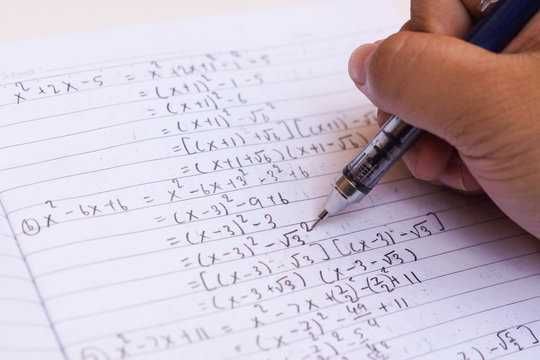 x²+2x-5 = x²+2x+1²-1-5
= (x+1)²-1-5
= (x+1)²-6
= (x+1)²-√6²
= [(x+1)+√6][(x+1)-√6
= (x+1+√6)(x+1-√6)
(b) x²-6x+6 = x²-6x+3²-3²+6
= (x-3)²-9+6
= (x-3)²-3
= (x-3)²-√3²
= [(x-3)-√3][(x-3)-√3]
= (x-3+√3)(x-3-√3)
x²-7x+11 = x²-7x+(7/2)²-(7/2)²+11
= (x-7/2)²-49/4+11